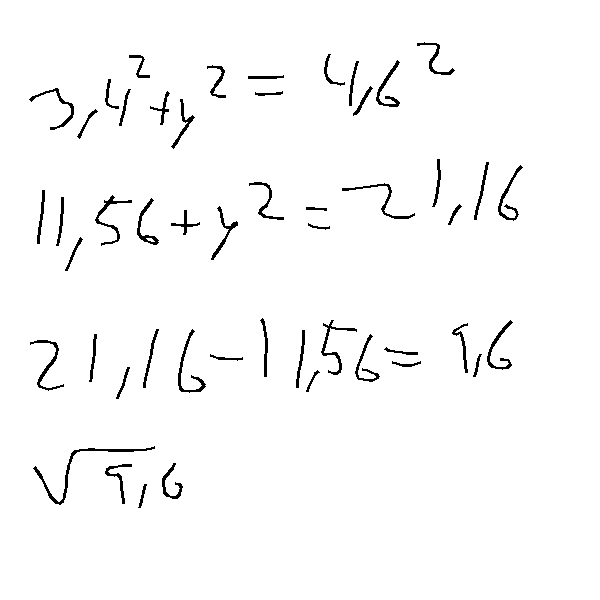 3,4² + y² = 4,6²
11,56 + y² = 21,16
21,16 - 11,56 = 9,6
√9,6